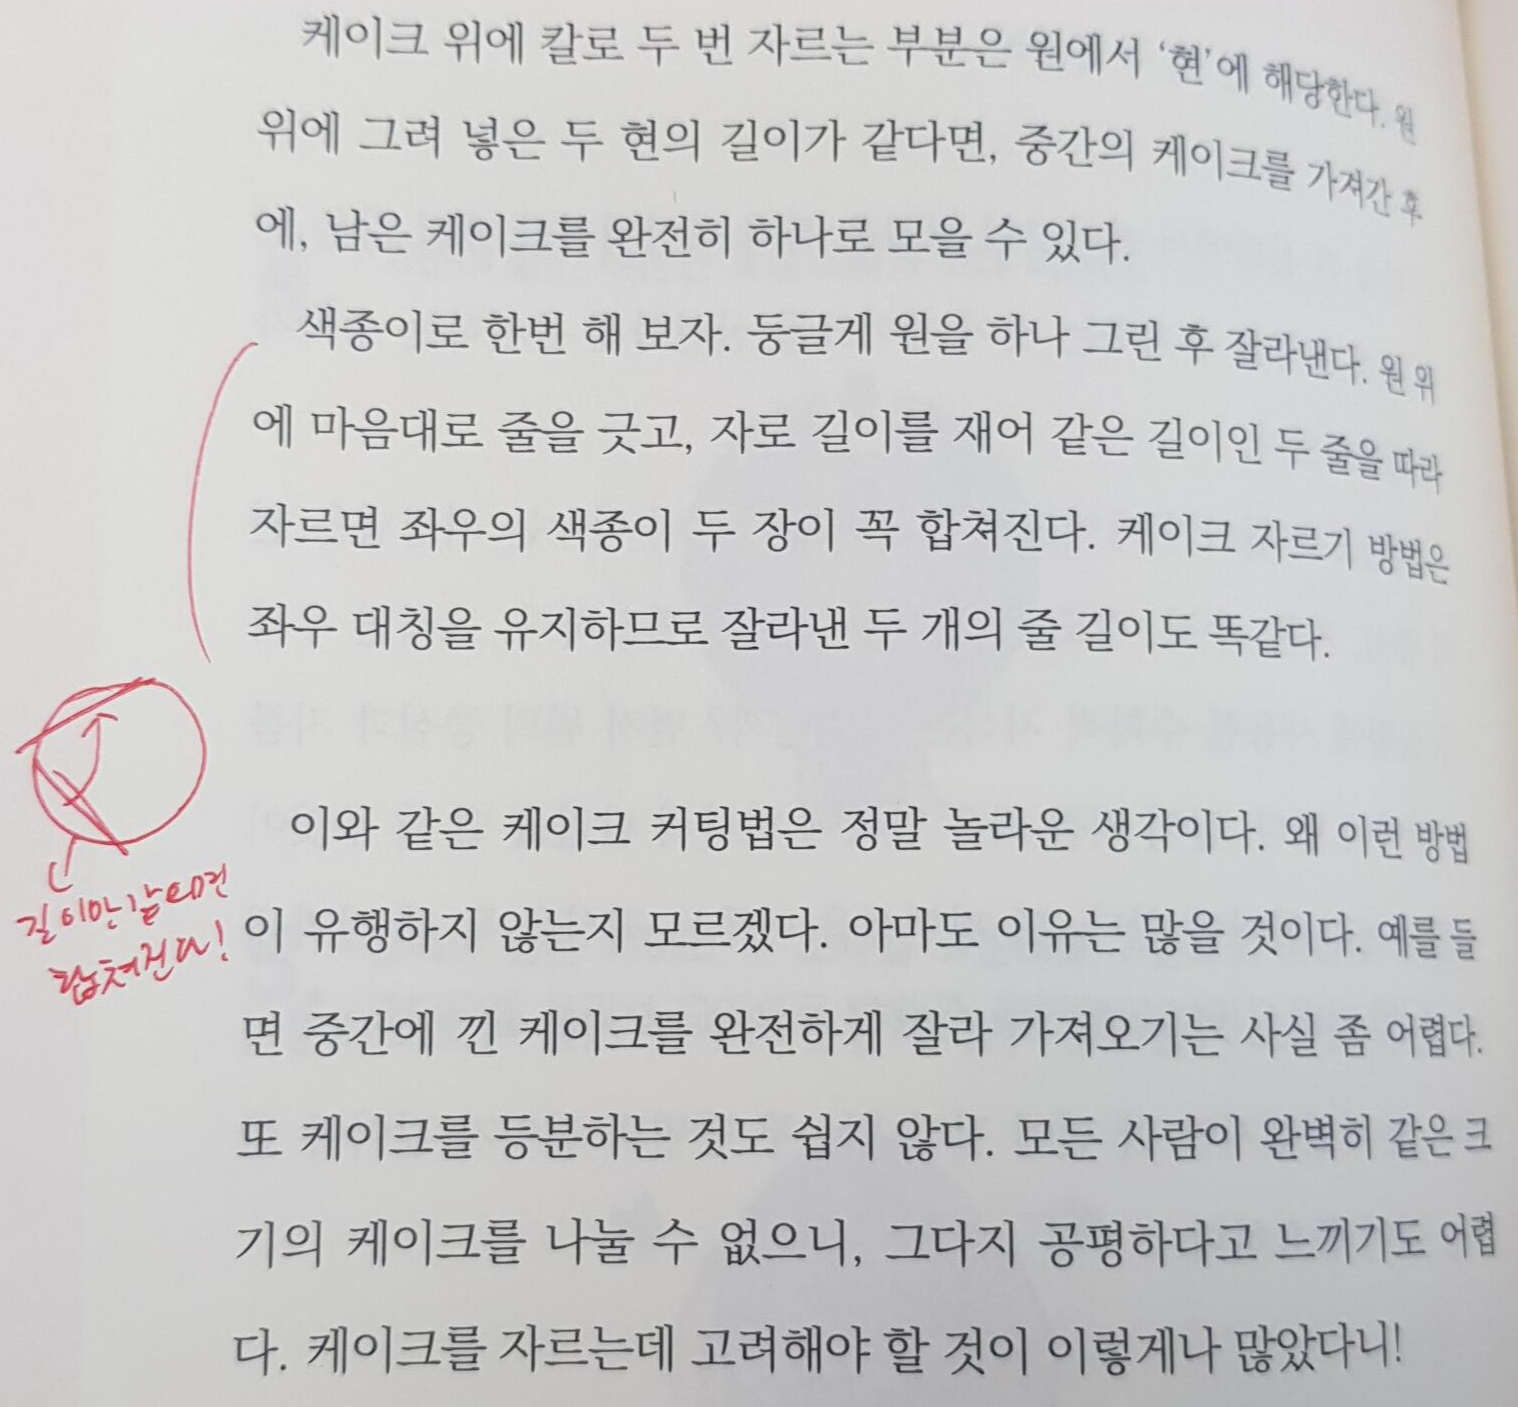 케이크 위에 칼로 두 번 자르는 부분은 원에서 ‘현’에 해당한다. 원
위에 그려 넣은 두 현의 길이가 같다면, 중간의 케이크를 가져간 후
에, 남은 케이크를 완전히 하나로 모을 수 있다.
색종이로 한번 해 보자. 둥글게 원을 하나 그린 후 잘라낸다. 원 위
에 마음대로 줄을 긋고, 자로 길이를 재어 같은 길이인 두 줄을 따라
자르면 좌우의 색종이 두 장이 꼭 합쳐진다. 케이크 자르기 방법은
좌우 대칭을 유지하므로 잘라낸 두 개의 줄 길이도 똑같다.
이와 같은 케이크 커팅법은 정말 놀라운 생각이다. 왜 이런 방법
이 유행하지 않는지 모르겠다. 아마도 이유는 많을 것이다. 예를 들
면 중간에 낀 케이크를 완전하게 잘라 가져오기는 사실 좀 어렵다.
또 케이크를 등분하는 것도 쉽지 않다. 모든 사람이 완벽히 같은 크
기의 케이크를 나눌 수 없으니, 그다지 공평하다고 느끼기도 어렵
다. 케이크를 자르는데 고려해야 할 것이 이렇게나 많았다니!
길이만 같으면
합쳐진다!